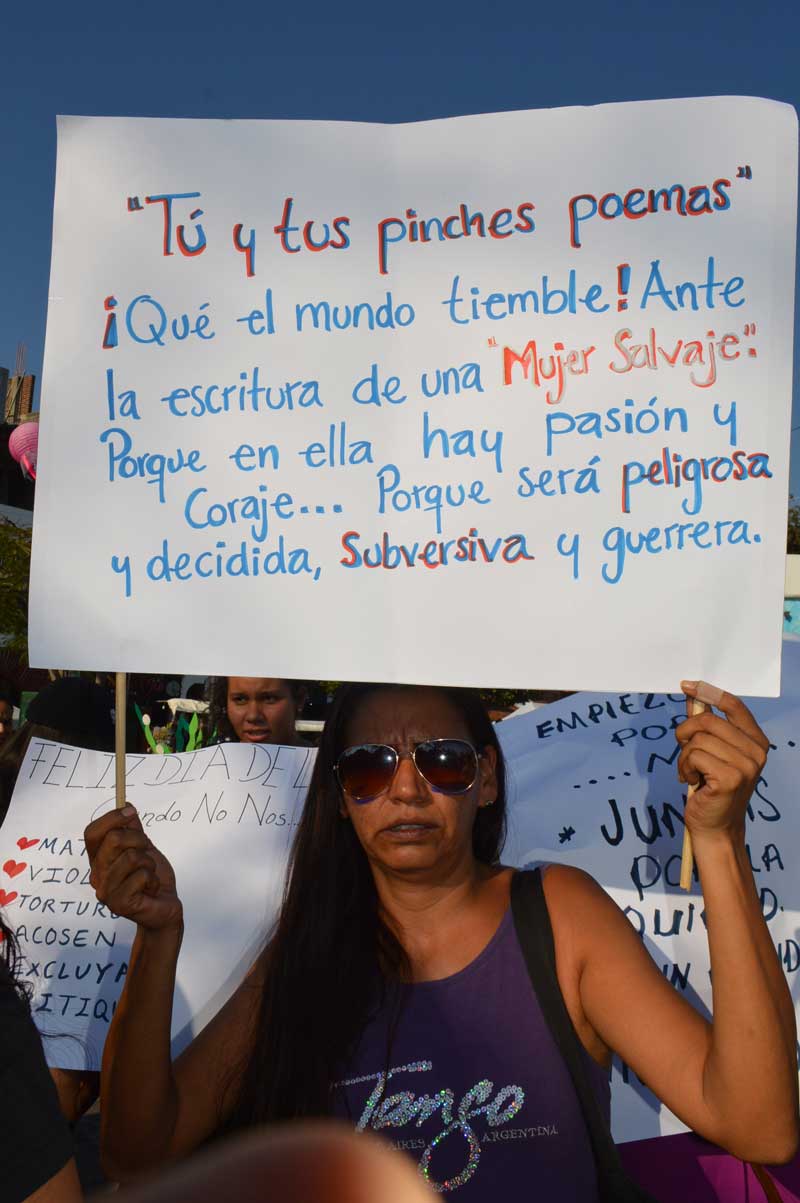 "Tú y tus pinches poemas"
¡Qué el mundo tiemble! Ante
la escritura de una "Mujer Salvaje".
Porque en ella hay pasión y
Coraje... Porque será peligrosa
y decidida, Subversiva y guerrera.
FELIZ DÍA DE
No Nos...
VIOL
TORTURE
ACOSEN
EXCLUYA
ITIQU
EMPIEZ
POR
....
* JUN AS
POR LA
Tango
AIRES ARGENTINA